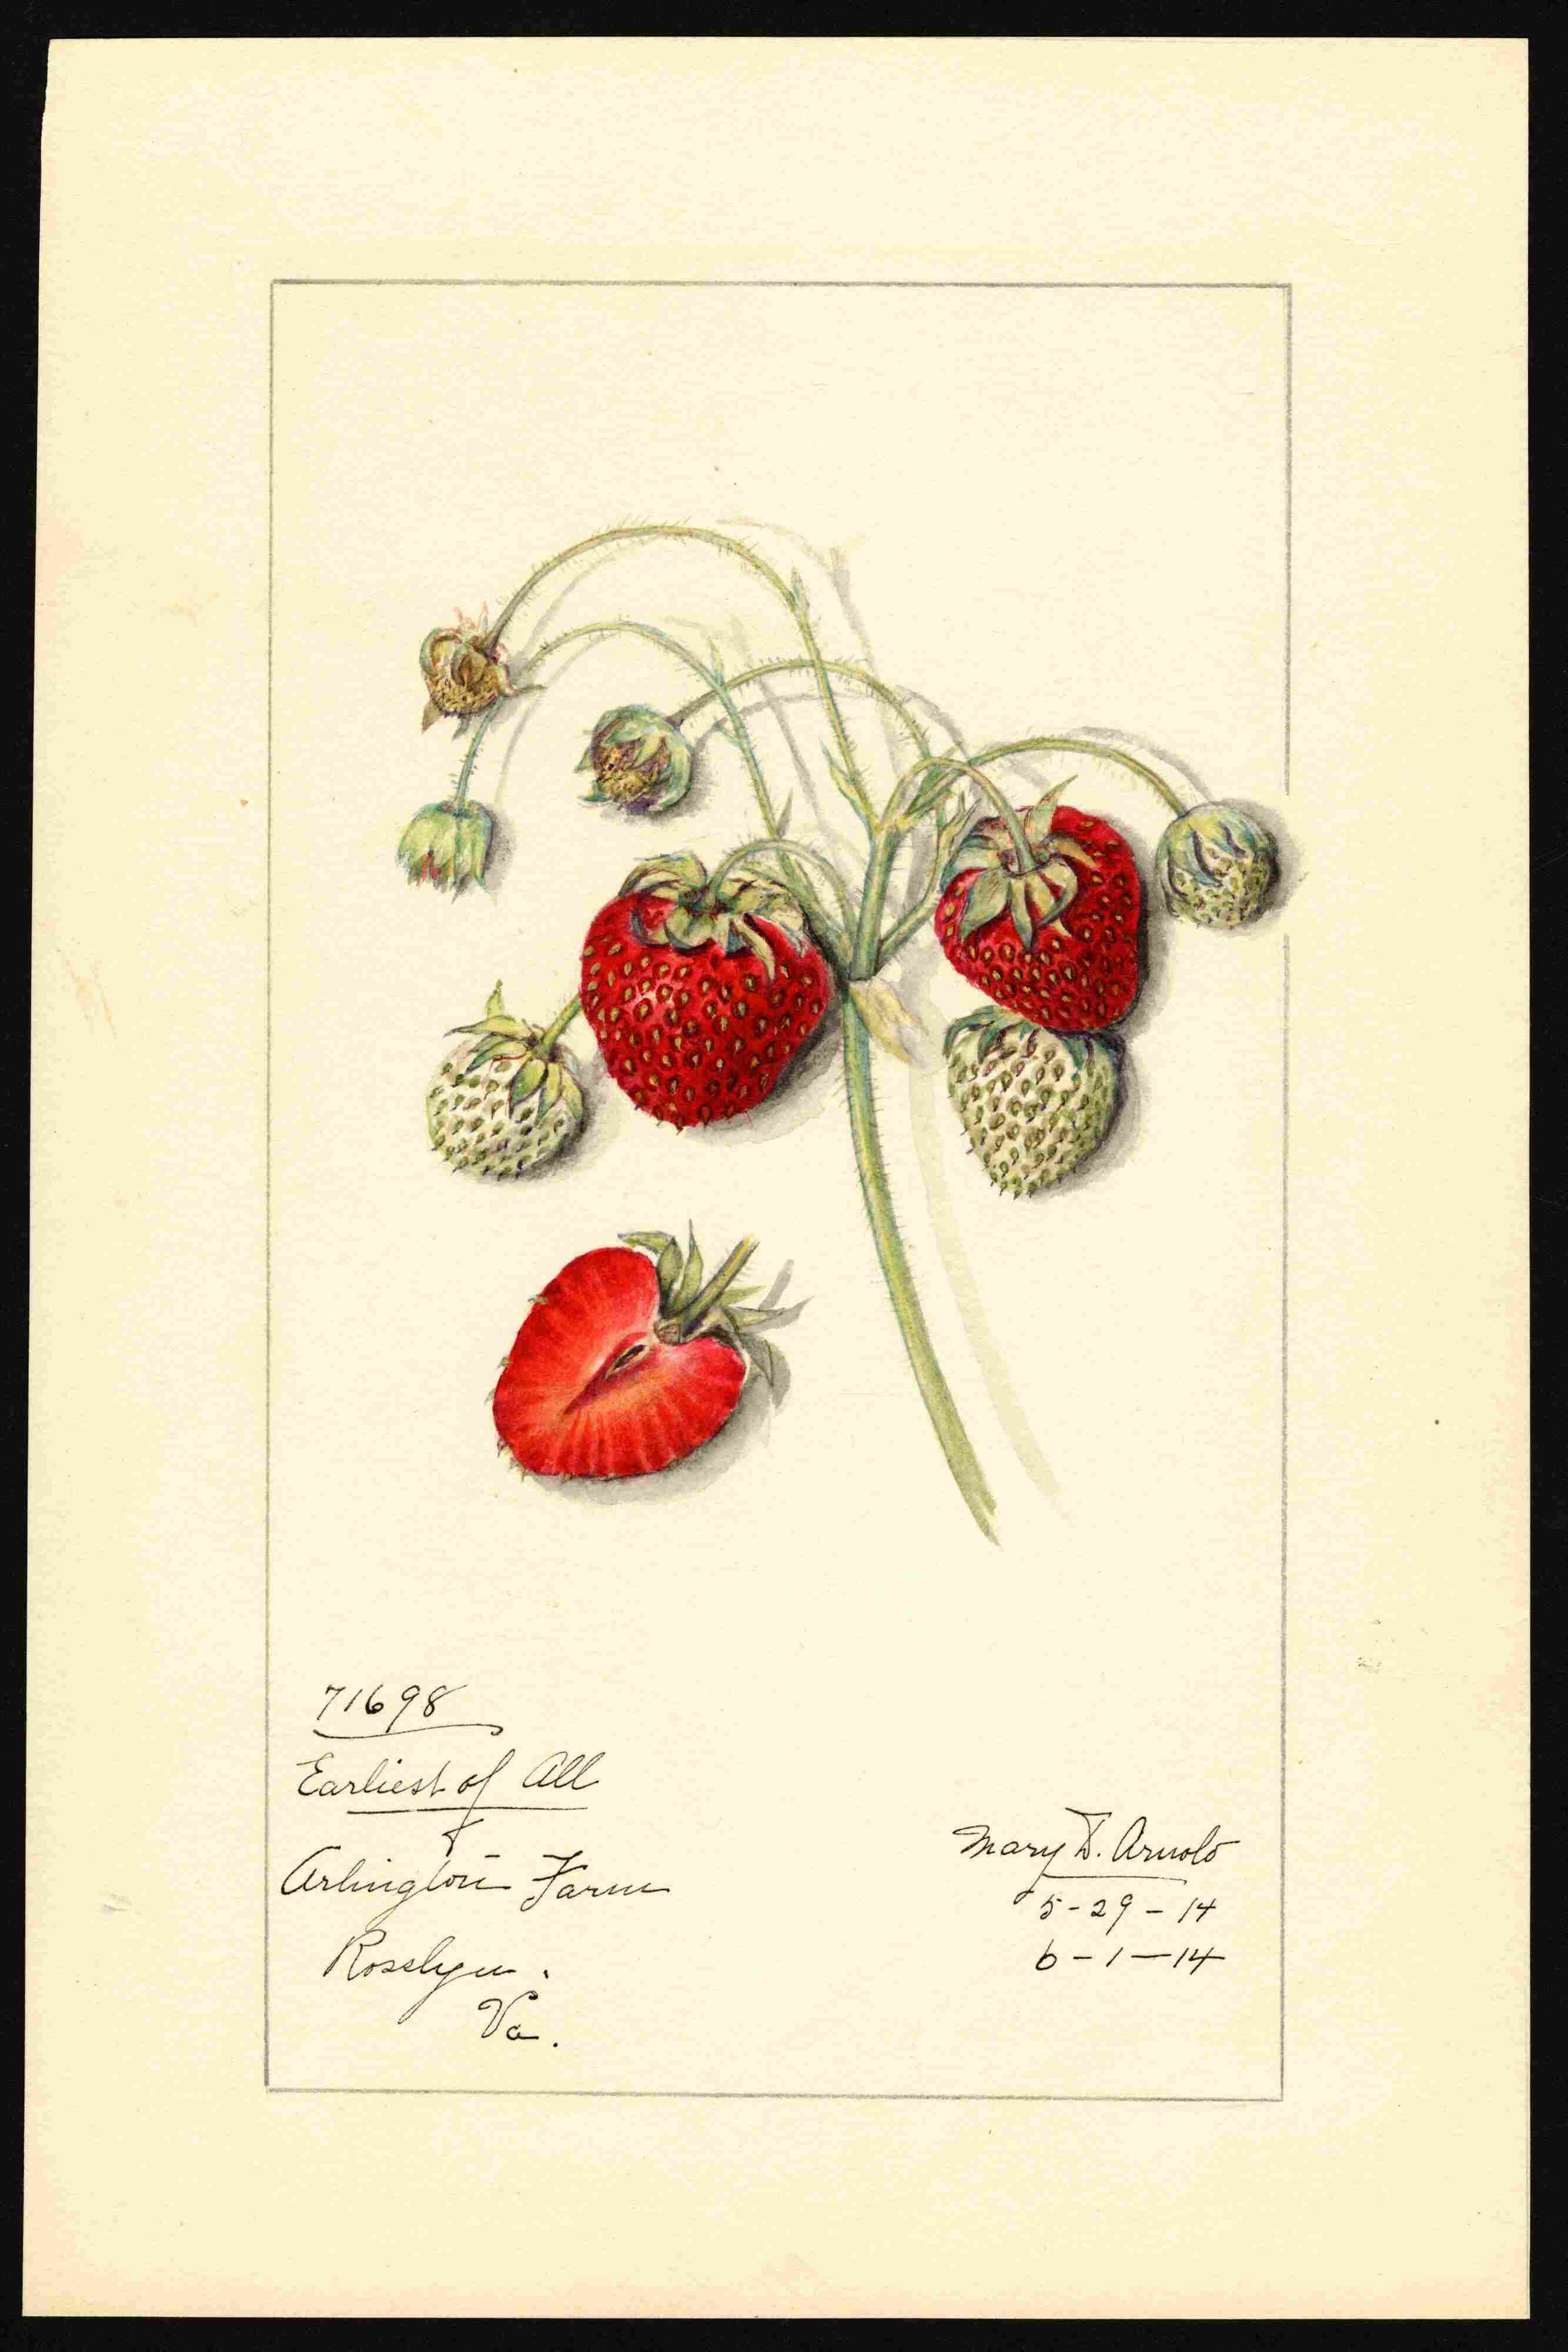 71698
Earliest of All
Arlington Farm
Rosslyn.
Va.
Mary D. Arnold
5-29-14
6-1-14